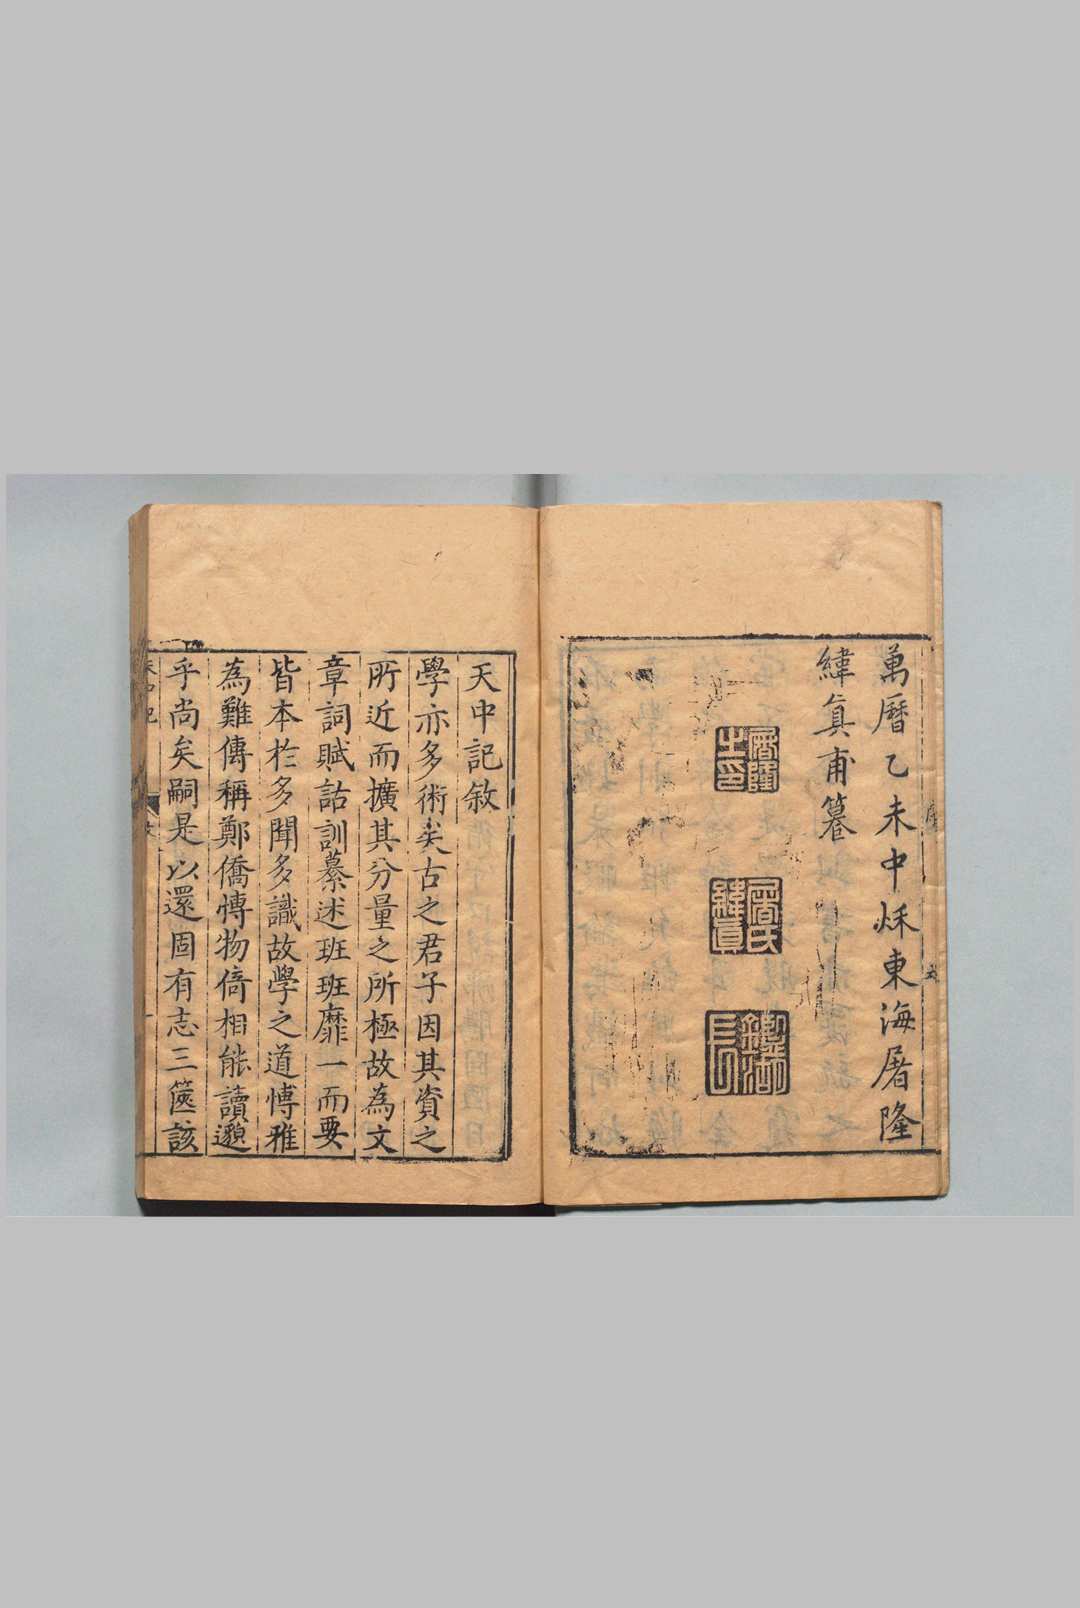 萬曆乙未中秌東海屠隆
緯真甫篹
屠隆之印
屠氏緯真
天中記敘
學亦多術矣古之君子因其資之
所近而擴其分量之所極故為文
章詞賦詁訓纂述班班靡一而要
皆本於多聞多識故學之道博雅
為難傳稱鄭僑博物倚相能讀邈
乎尚矣嗣是以還固有志三篋該